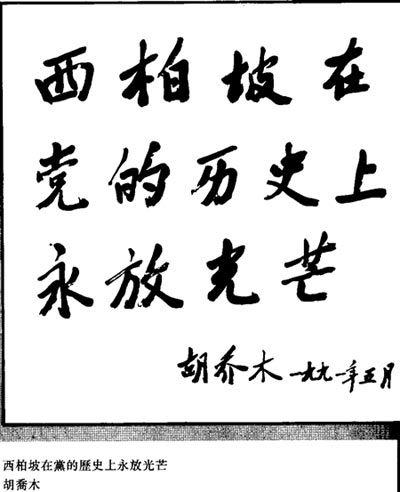 西柏坡在
党的历史上
永放光芒
胡乔木 一九九一年五月
西柏坡在黨的歷史上永放光芒
胡喬木